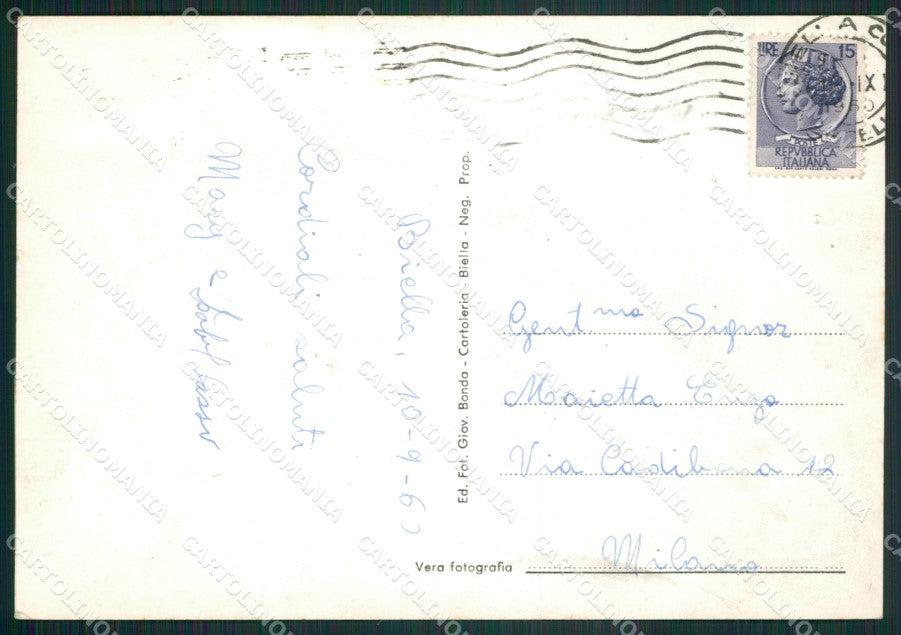 Biella, 10-9-60
Cordiali saluti
Mary e
Ed. Fot. Giov. Bonda - Cartoleria - Biella - Neg. Prop.
LIRE 15
POSTE
REPVBBLICA
ITALIANA
IX
Gent.mo Signor
Maietta Enzo
Via Cadibona 12
Milano
Vera fotografia
CARTOLINOMANIA